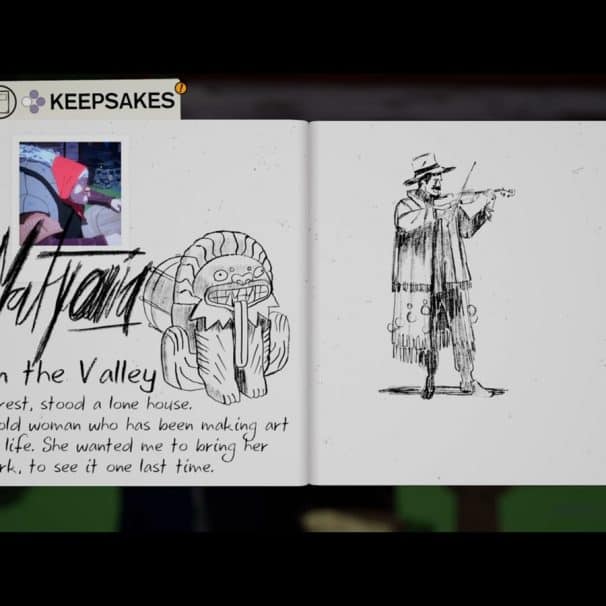 KEEPSAKES
Matyania
n the Valley
rest, stood a lone house.
old woman who has been making art
life. She wanted me to bring her
rk, to see it one last time.